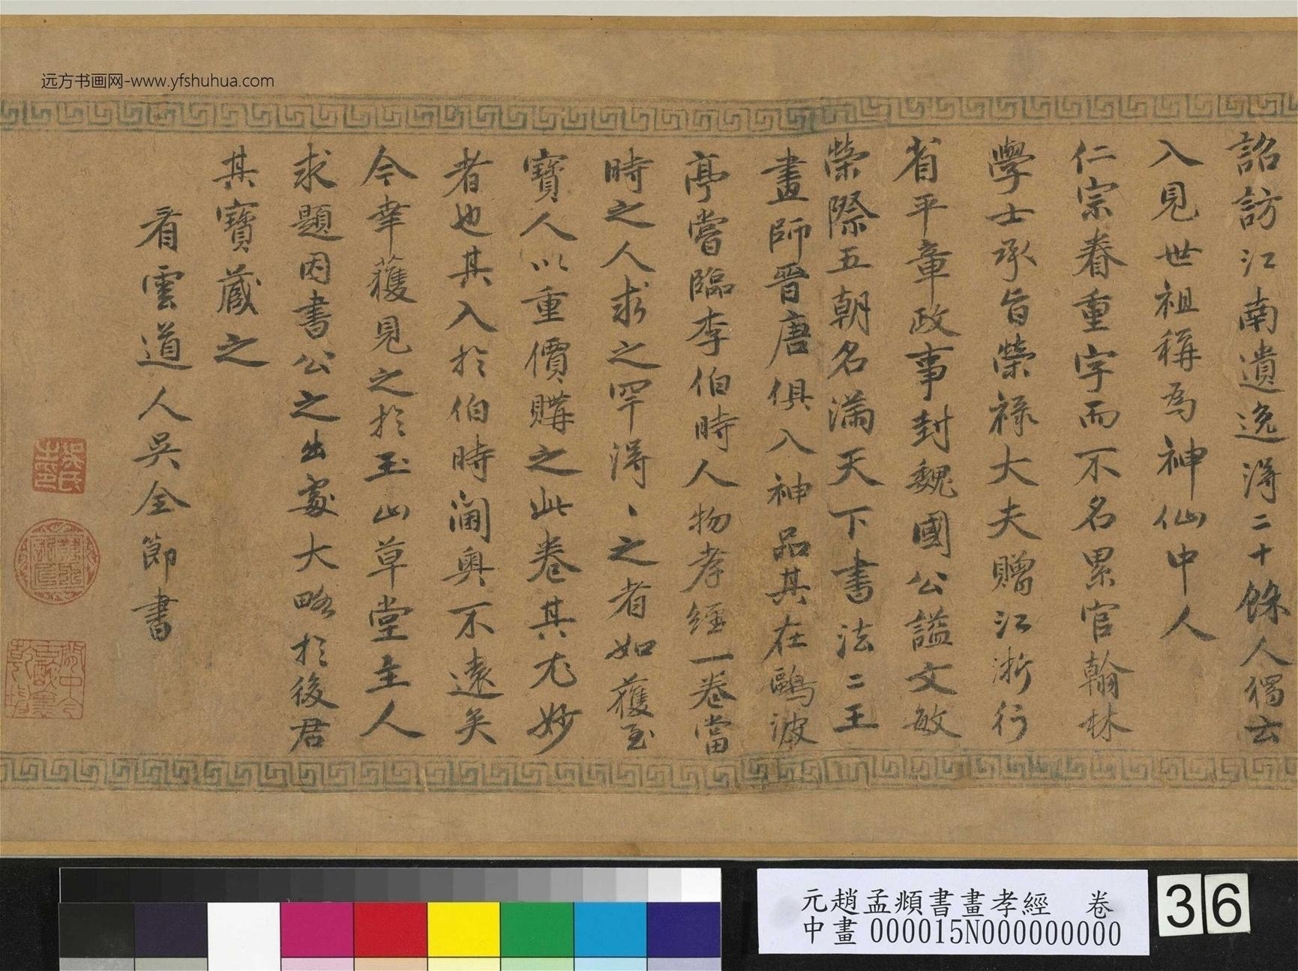 远方书画网-www.yfshuhua.com
詔訪江南遺逸得二十餘人獨公
入見世祖稱為神仙中人
仁宗眷重字而不名累官翰林
學士承旨榮祿大夫贈江浙行
省平章政事封魏國公謚文敏
榮際五朝名滿天下書法二王
畫師晉唐俱入神品其在鷗波
亭嘗臨李伯時人物孝經一卷當
時之人求之罕得、之者如獲至
寶人以重價購之此卷其尤妙
者也其入於伯時閫奧不遠矣
今幸獲見之於玉山草堂主人
求題因書公之出處大略於後君
其寶藏之
看雲道人吳全節書
吳氏
元趙孟頫書畫孝經 卷
中畫 000015N000000000
36